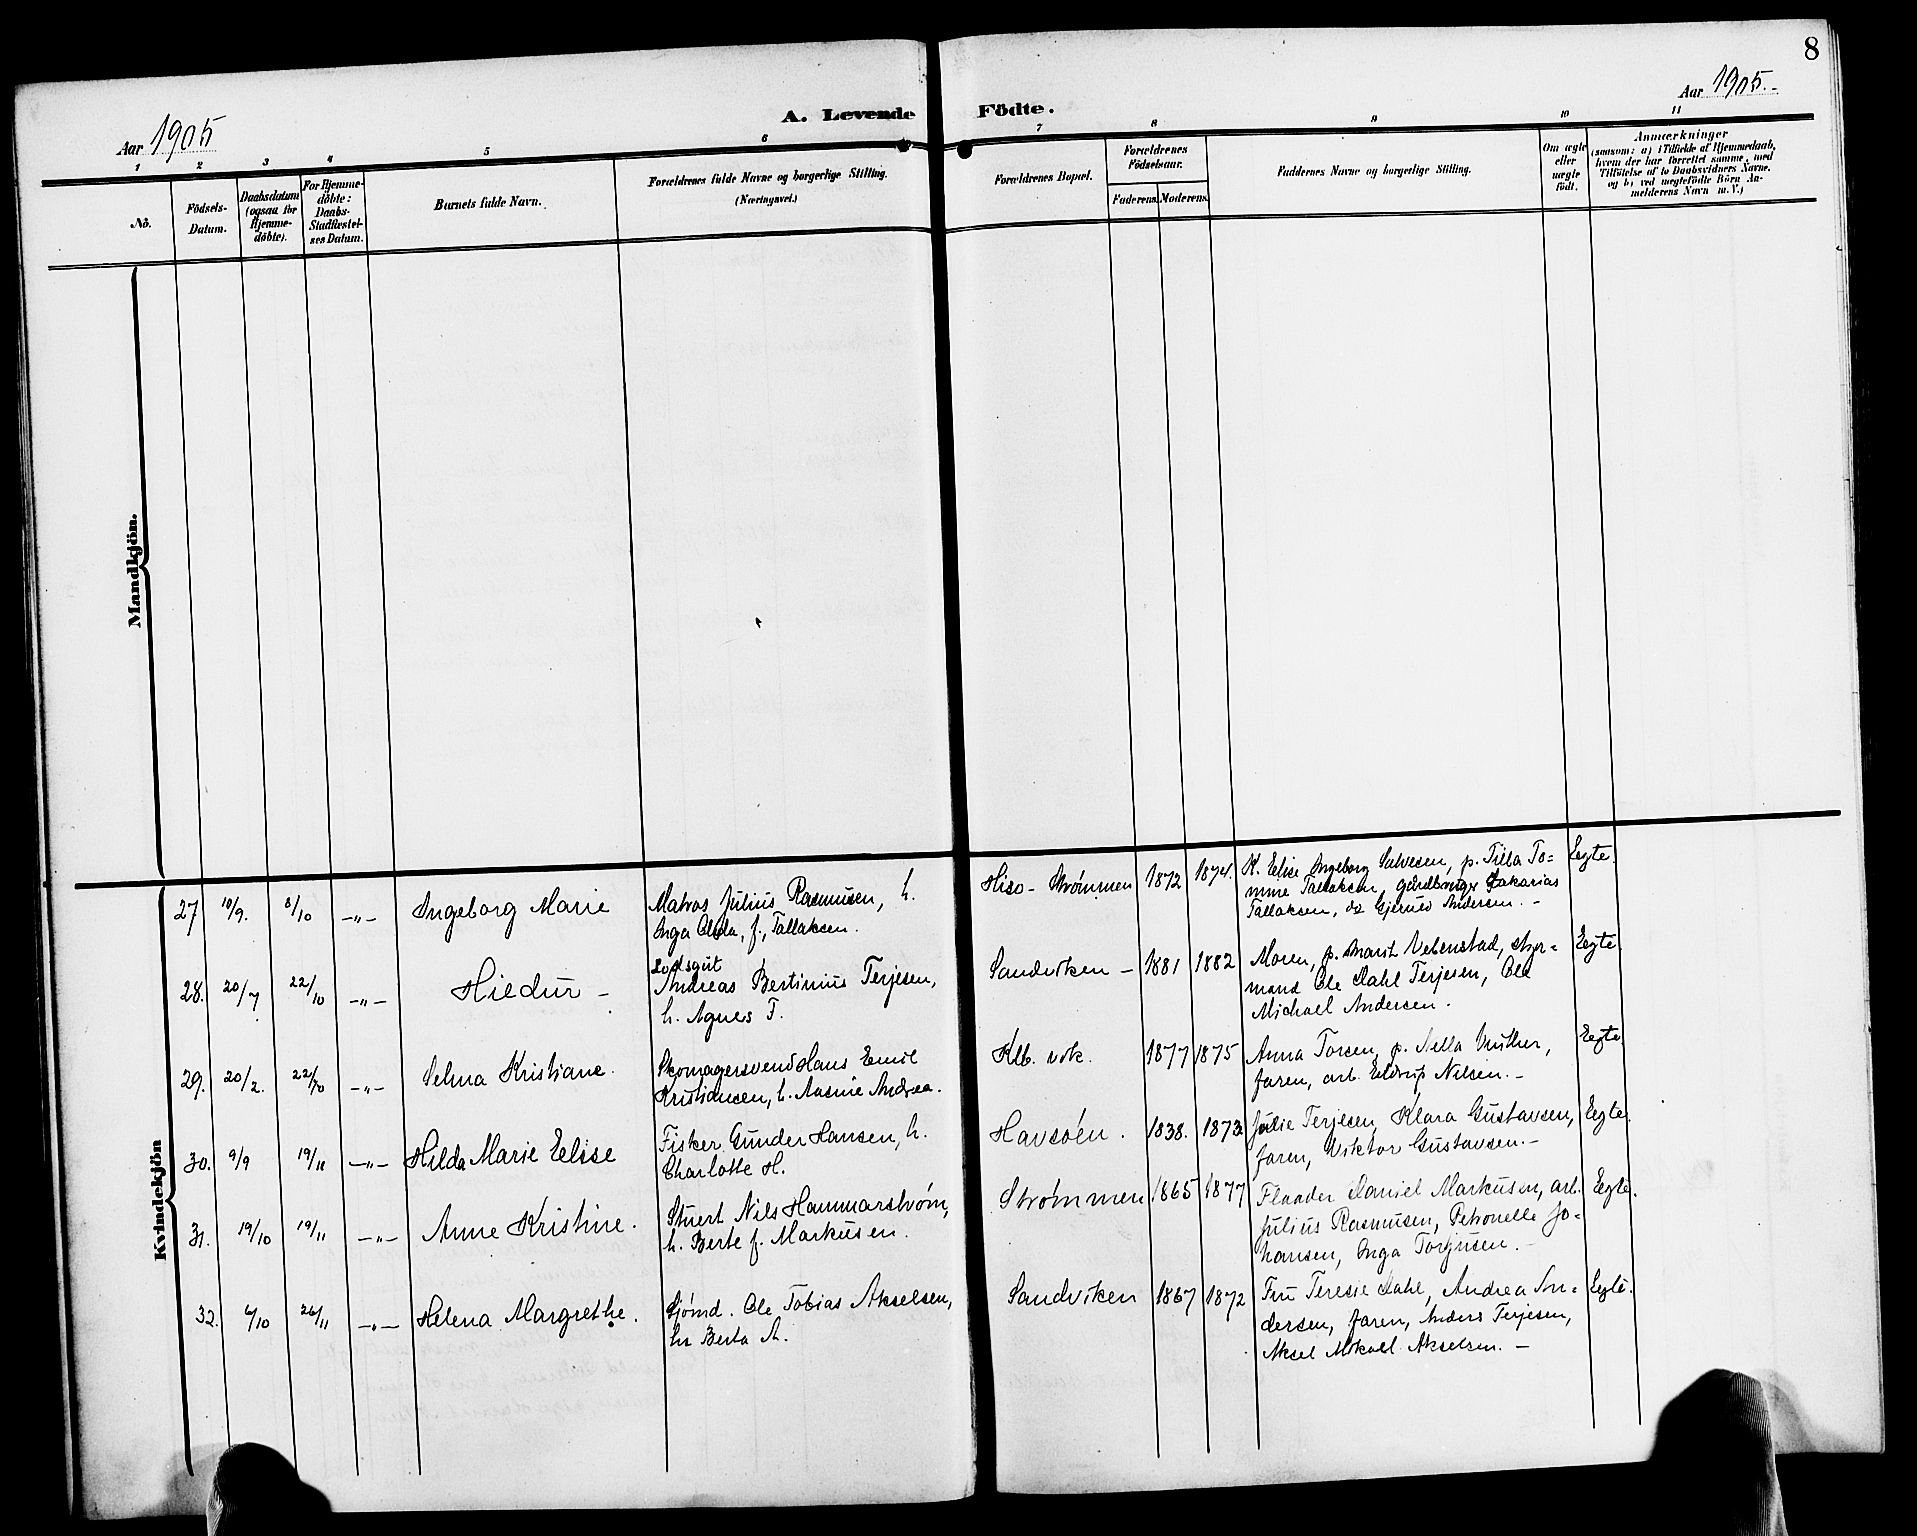 8
Aar 1905
A. Levende Födte.
Aar 1905.-
1 2 3 4 5 6 7 8 9 10 11
No.
Födsels-Datum.
Daabsdatum (ogsaa for Hjemme-döbte).
For Hjemme-döbte: Daabs-Stadfæstel-ses Datum.
Barnets fulde Navn.
Forældrenes fulde Navne og borgerlige Stilling.
(Næringsvei.)
Forældrenes Bopæl.
Forældrenes Födselsaar.
Faderens. Moderens.
Faddernes Navne og borgerlige Stilling.
Om ægte eller uægte födt.
Anmærkninger
(saasom: a) i Tilfælde af Hjemmedaab,
hvem der har forrettet samme, med
Tilföielse af to Daabsvidners Navne.
og b) ved uægtefödte Börn An-
melderens Navn m. V.)
Mandkjön.
Kvindekjön
27 10/9. 8/10 -„- Ingeborg Marie
Matros Julius Rasmusen, h.
Inga Olida, f., Tallaksen.
Hiso - Strømmen 1872 1874.
K. Elise Ingeborg Salvesen, p. Tilla To=
mine Tallaksen, gaardbruger Zakarias
Tallaksen, do Gjerulv Andersen. -
Eegte.
28. 20/7 22/10 -„- Hildur -
Lodsgut
Andreas Bertinius Terjesen,
h. Agnes T.
Sandviken - 1881 1882
Moren, p. Marit Vebenstad, styr=
mand Ole Dahl Terjesen, Ole
Michael Andersen.
Eegte.
29. 20/2. 22/10 -„- Selma Kristiane.
Skomagersvend Hans Emil
Kristiansen, h. Aasine Andrea.
Klb. vok. 1877 1875
Anna Torsen, p. Nella Muther,
faren, arb. Eldrup Nilsen. -
Eegte.
30. 9/9 19/11 -„- Hilda Marie Eelise
Fisker Gunder Hansen, h.
Charlotte H.
Havsøen. 1838. 1873
Julie Terjesen, Klara Gustavsen,
faren, Viktor Gustavsen. -
Eegte.
31. 19/10 19/11 -„- Anne Kristine.
Stuert Nils Hammarstrøm,
h. Berte f. Markusen.
Strømmen 1865 1877
Flaader Daniel Markusen, arb.
Julius Rasmusen, Petronelle Jo=
hansen, Inga Torjusen. -
Eegte.
32. 6/10 26/11 -„- Helena Margrethe.
Sjømd. Ole Tobias Akselsen,
hu Berta A.
Sandviken 1867 1872
Fru Teresie Dahl, Andrea An=
dersen, faren, Anders Terjesen,
Aksel Mikael Akselsen. -
Eegte.